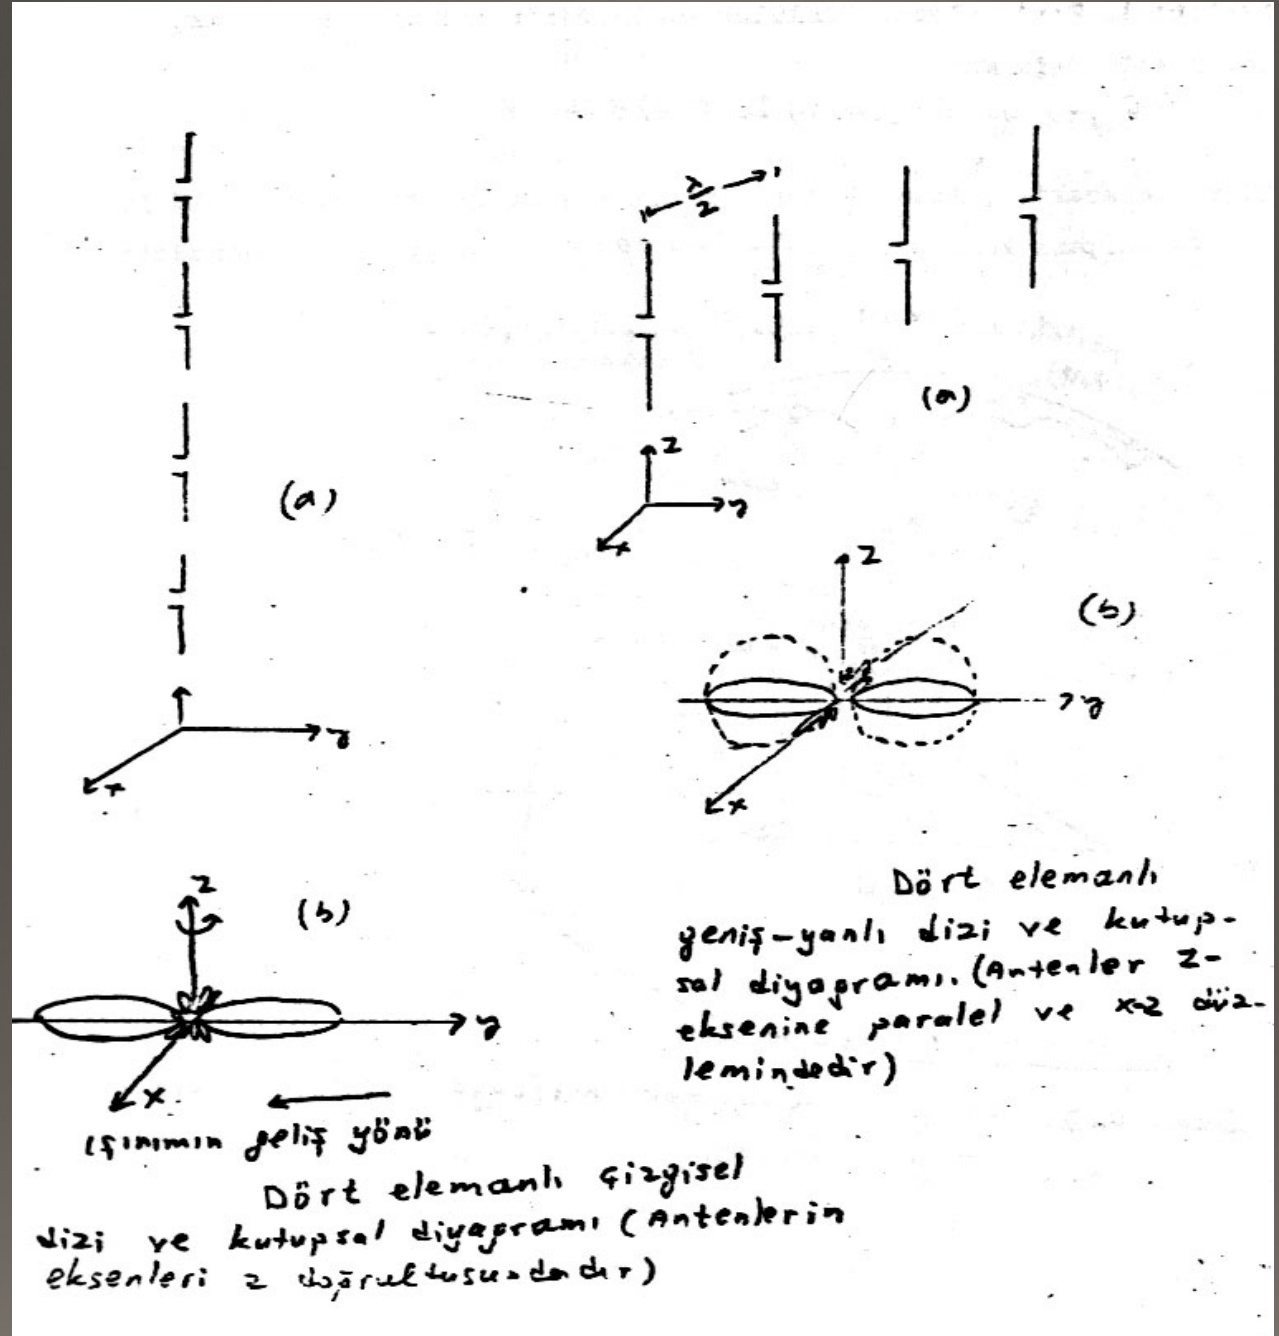 (a)
y
x
z
(b)
y
x
ışınımın geliş yönü
Dört elemanlı çizgisel
dizi ve kutupsal diyagramı (Antenlerin
eksenleri z doğrultusundadır)
λ/2
(a)
z
y
x
z
(b)
y
x
Dört elemanlı
geniş-yanlı dizi ve kutup-
sal diyagramı. (Antenler z-
eksenine paralel ve x-z düz-
lemindedir)